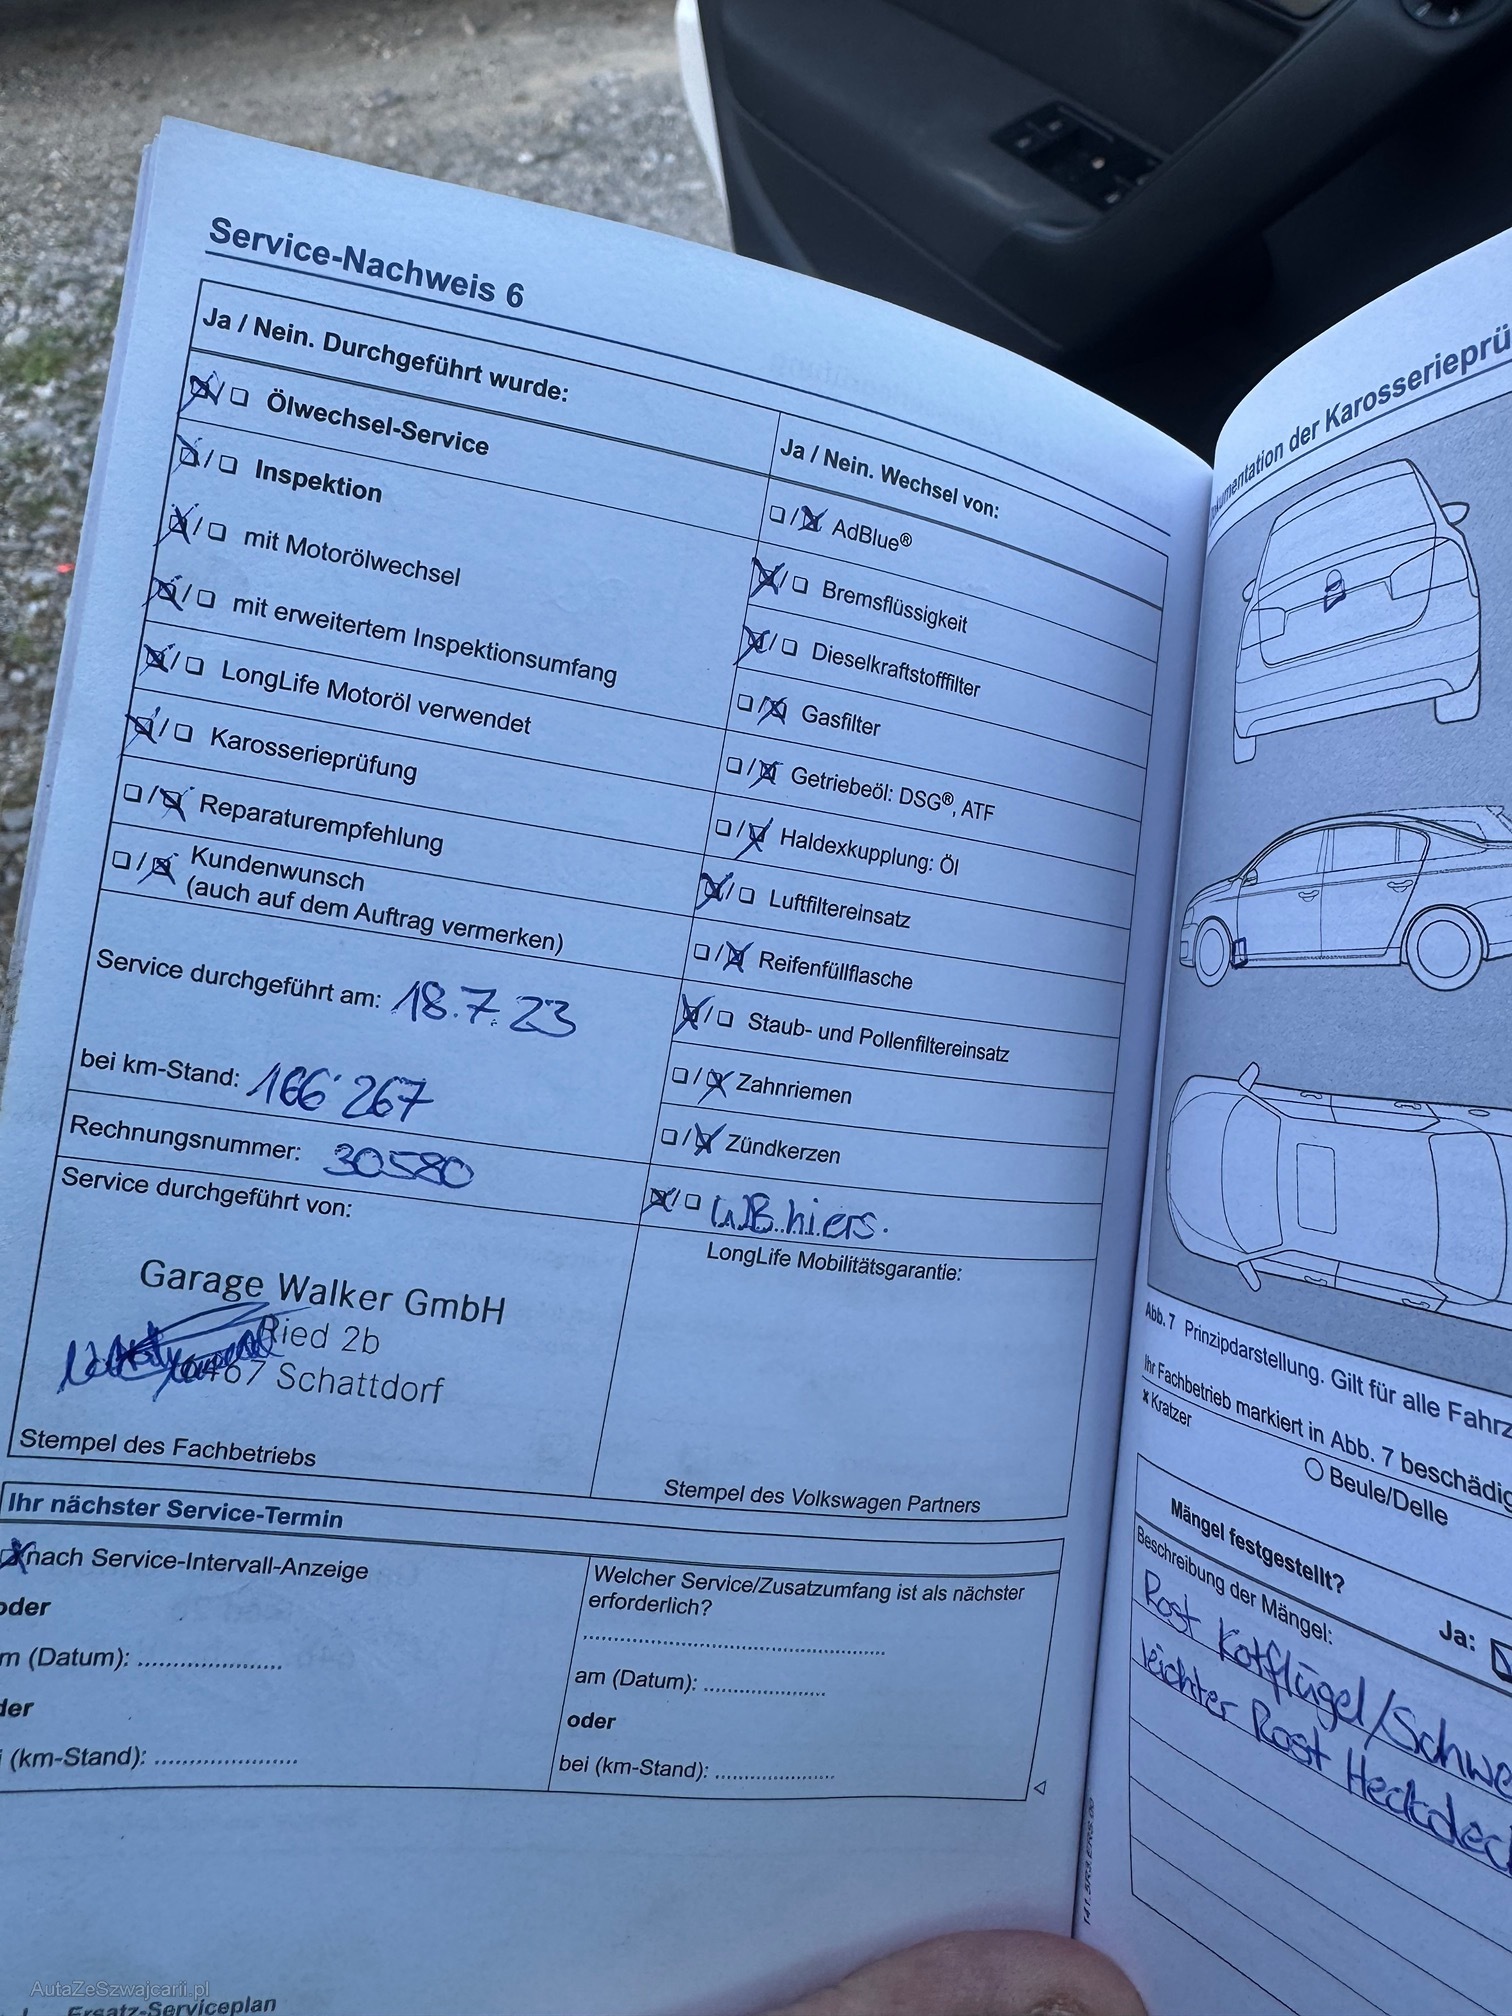 Service-Nachweis 6
Ja / Nein. Durchgeführt wurde:
Ölwechsel-Service
Inspektion
mit Motorölwechsel
mit erweitertem Inspektionsumfang
LongLife Motoröl verwendet
Karosserieprüfung
Reparaturempfehlung
Kundenwunsch
(auch auf dem Auftrag vermerken)
Service durchgeführt am: 18.7.23
bei km-Stand: 166'267
Rechnungsnummer: 30580
Service durchgeführt von:
Garage Walker GmbH
Ried 2b
6467 Schattdorf
Stempel des Fachbetriebs
Ja / Nein. Wechsel von:
AdBlue®
Bremsflüssigkeit
Dieselkraftstofffilter
Gasfilter
Getriebeöl: DSG®, ATF
Haldexkupplung: Öl
Luftfiltereinsatz
Reifenfüllflasche
Staub- und Pollenfiltereinsatz
Zahnriemen
Zündkerzen
LongLife Mobilitätsgarantie:
Stempel des Volkswagen Partners
Ihr nächster Service-Termin
nach Service-Intervall-Anzeige
oder
m (Datum): ....................
der
(km-Stand): ....................
Welcher Service/Zusatzumfang ist als nächster
erforderlich?
am (Datum): ....................
oder
bei (km-Stand): ....................
Ersatz-Serviceplan
kumentation der Karosserieprü
Abb. 7 Prinzipdarstellung. Gilt für alle Fahrz
Ihr Fachbetrieb markiert in Abb. 7 beschädig
x Kratzer
Beule/Delle
Mängel festgestellt?
Ja:
Beschreibung der Mängel:
Rost Kotflügel/Schwe
leichter Rost Heckdeck
AutaZeSzwajcarii.pl